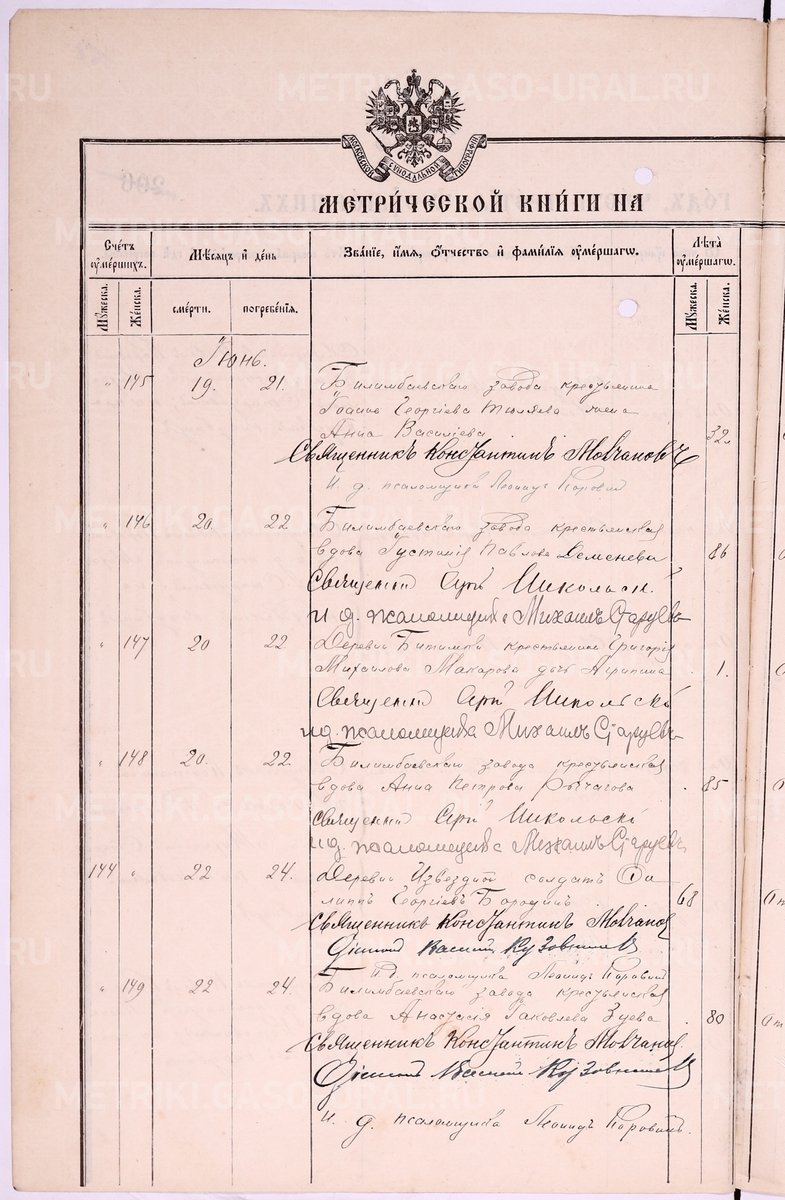 МОСКОВСКОЙ СѴНОДАЛЬНОЙ ТИПОГРАФІИ
МЕТРИ́ЧЕСКОЙ КНИ́ГИ НА
Счетъ ѹмершихъ.
Мѣсяцъ и день
Званіе, имя, Отчество и фамилія ѹмершагѡ.
Лѣта ѹмершагѡ.
Мꙋжеска.
Женска.
смерти.
погребенія.
Мꙋжеска.
Женска.
Іюнь.
" 145 19. 21. Билимбаевскаго завода крестьянина
Іоанна Георгіева жена
Анна Васильева 32
Священникъ Константинъ Мовчановъ
И. д. псаломщика Леонидъ Коровин
" 146 20. 22 Билимбаевскаго завода крестьянская
вдова Іустинія Павлова Деменева 86
Священник Арк Никольск
и д. псаломщика Михаилъ
" 147 20 22 Деревни Битимки крестьянина Григорія
Михайлова Макарова дочь Агрипина 1.
Священник Арк Никольскі
и д. псаломщика Михаилъ
" 148 20. 22. Билимбаевскаго завода крестьянская
вдова Анна Петрова Рычагова 85
Священник Арк Никольскі
и д. псаломщика Михаилъ
144 " 22 24. Деревни Извездной солдатъ Фи
липпъ Георгіевъ Бородинъ 68
Священникъ Константинъ Мовчанов
Діаконъ Василій Кузовников
И. д. псаломщика Леонидъ Коровин
" 149 22 24. Билимбаевскаго завода крестьянская
вдова Анастасія Іаковлева Зуева 80
Священникъ Константинъ Мовчанов
Діаконъ Василій Кузовников
И. д. псаломщика Леонидъ Коровинъ.
METRIKI.GASO-URAL.RU